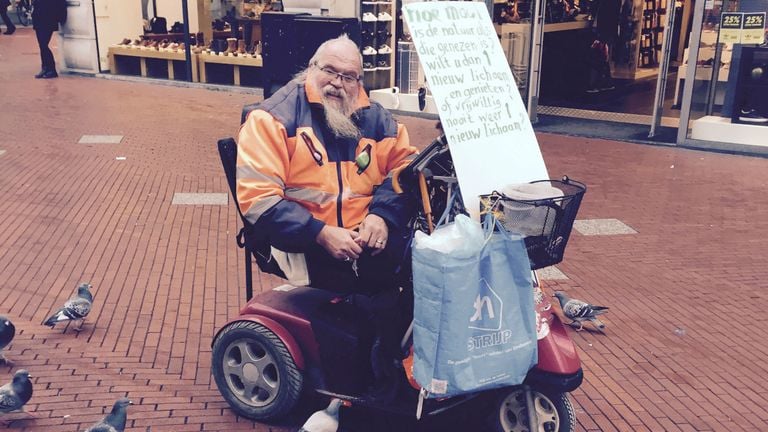 hoe mooi
is de natuur als
die genezen is?
wilt u dan 1
nieuw lichaam
en genieten?
of vrijwillig
nooit weer 1
nieuw lichaam?
STRIJP
25%
25%